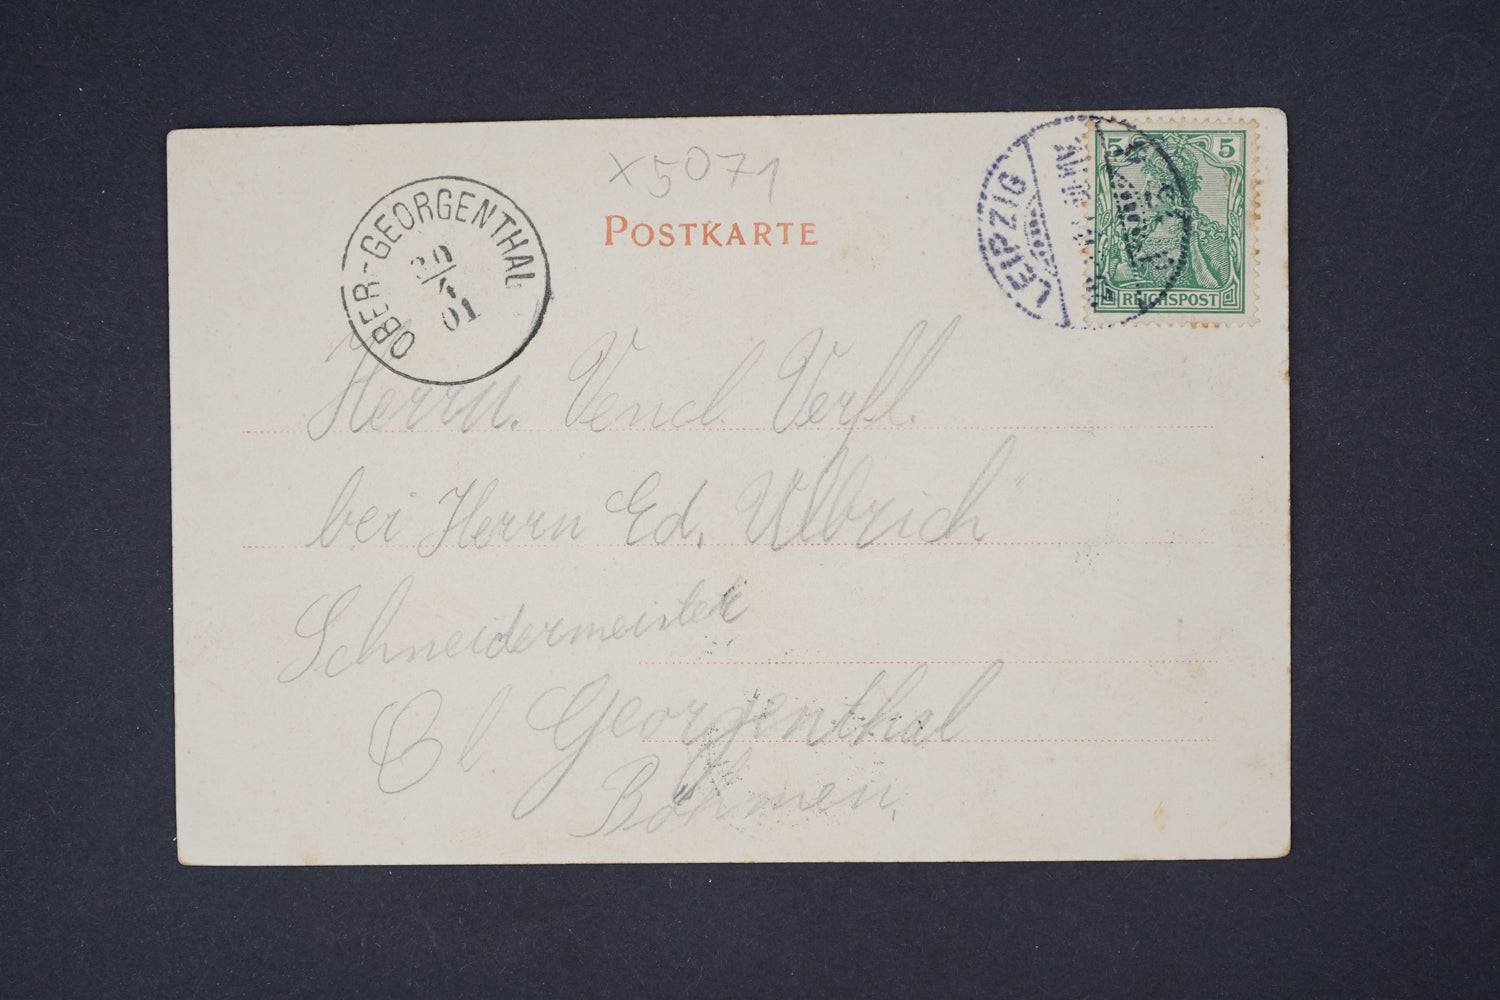 x5071
POSTKARTE
OBER-GEORGENTHAL
01
LEIPZIG
5 5
REICHSPOST
Herrn. Vencl. Verfl.
bei Herrn Ed. Ullrich
Schneidermeister
Georgenthal
Böhmen.